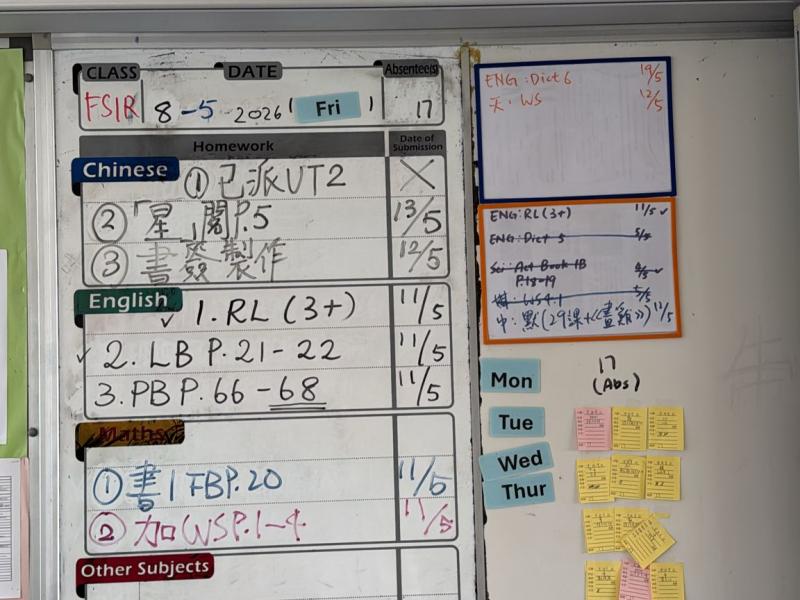 CLASS DATE Absentee(s)
8-5-2026 (Fri) 17
Homework Date of Submission
Chinese
① 已派UT2
② 「星」閱P.5 13/5
③ 書簽製作 12/5
English
✓ 1. RL (3+) 11/5
✓ 2. LB P.21-22 11/5
3. PB P.66-68 11/5
Maths
① 書1FBP.20 11/5
② 加WSP.1~4 11/5
Other Subjects
ENG: Dict 6 19/5
天. WS 12/5
ENG: RL (3+) 11/5 ✓
ENG: Dict 5 5/5
Sci: Act Book 1B
P.18-19
WS4.1 5/5
中: 默(29課+《畫雞》) 12/5
Mon 17
(Abs)
Tue
Wed
Thur